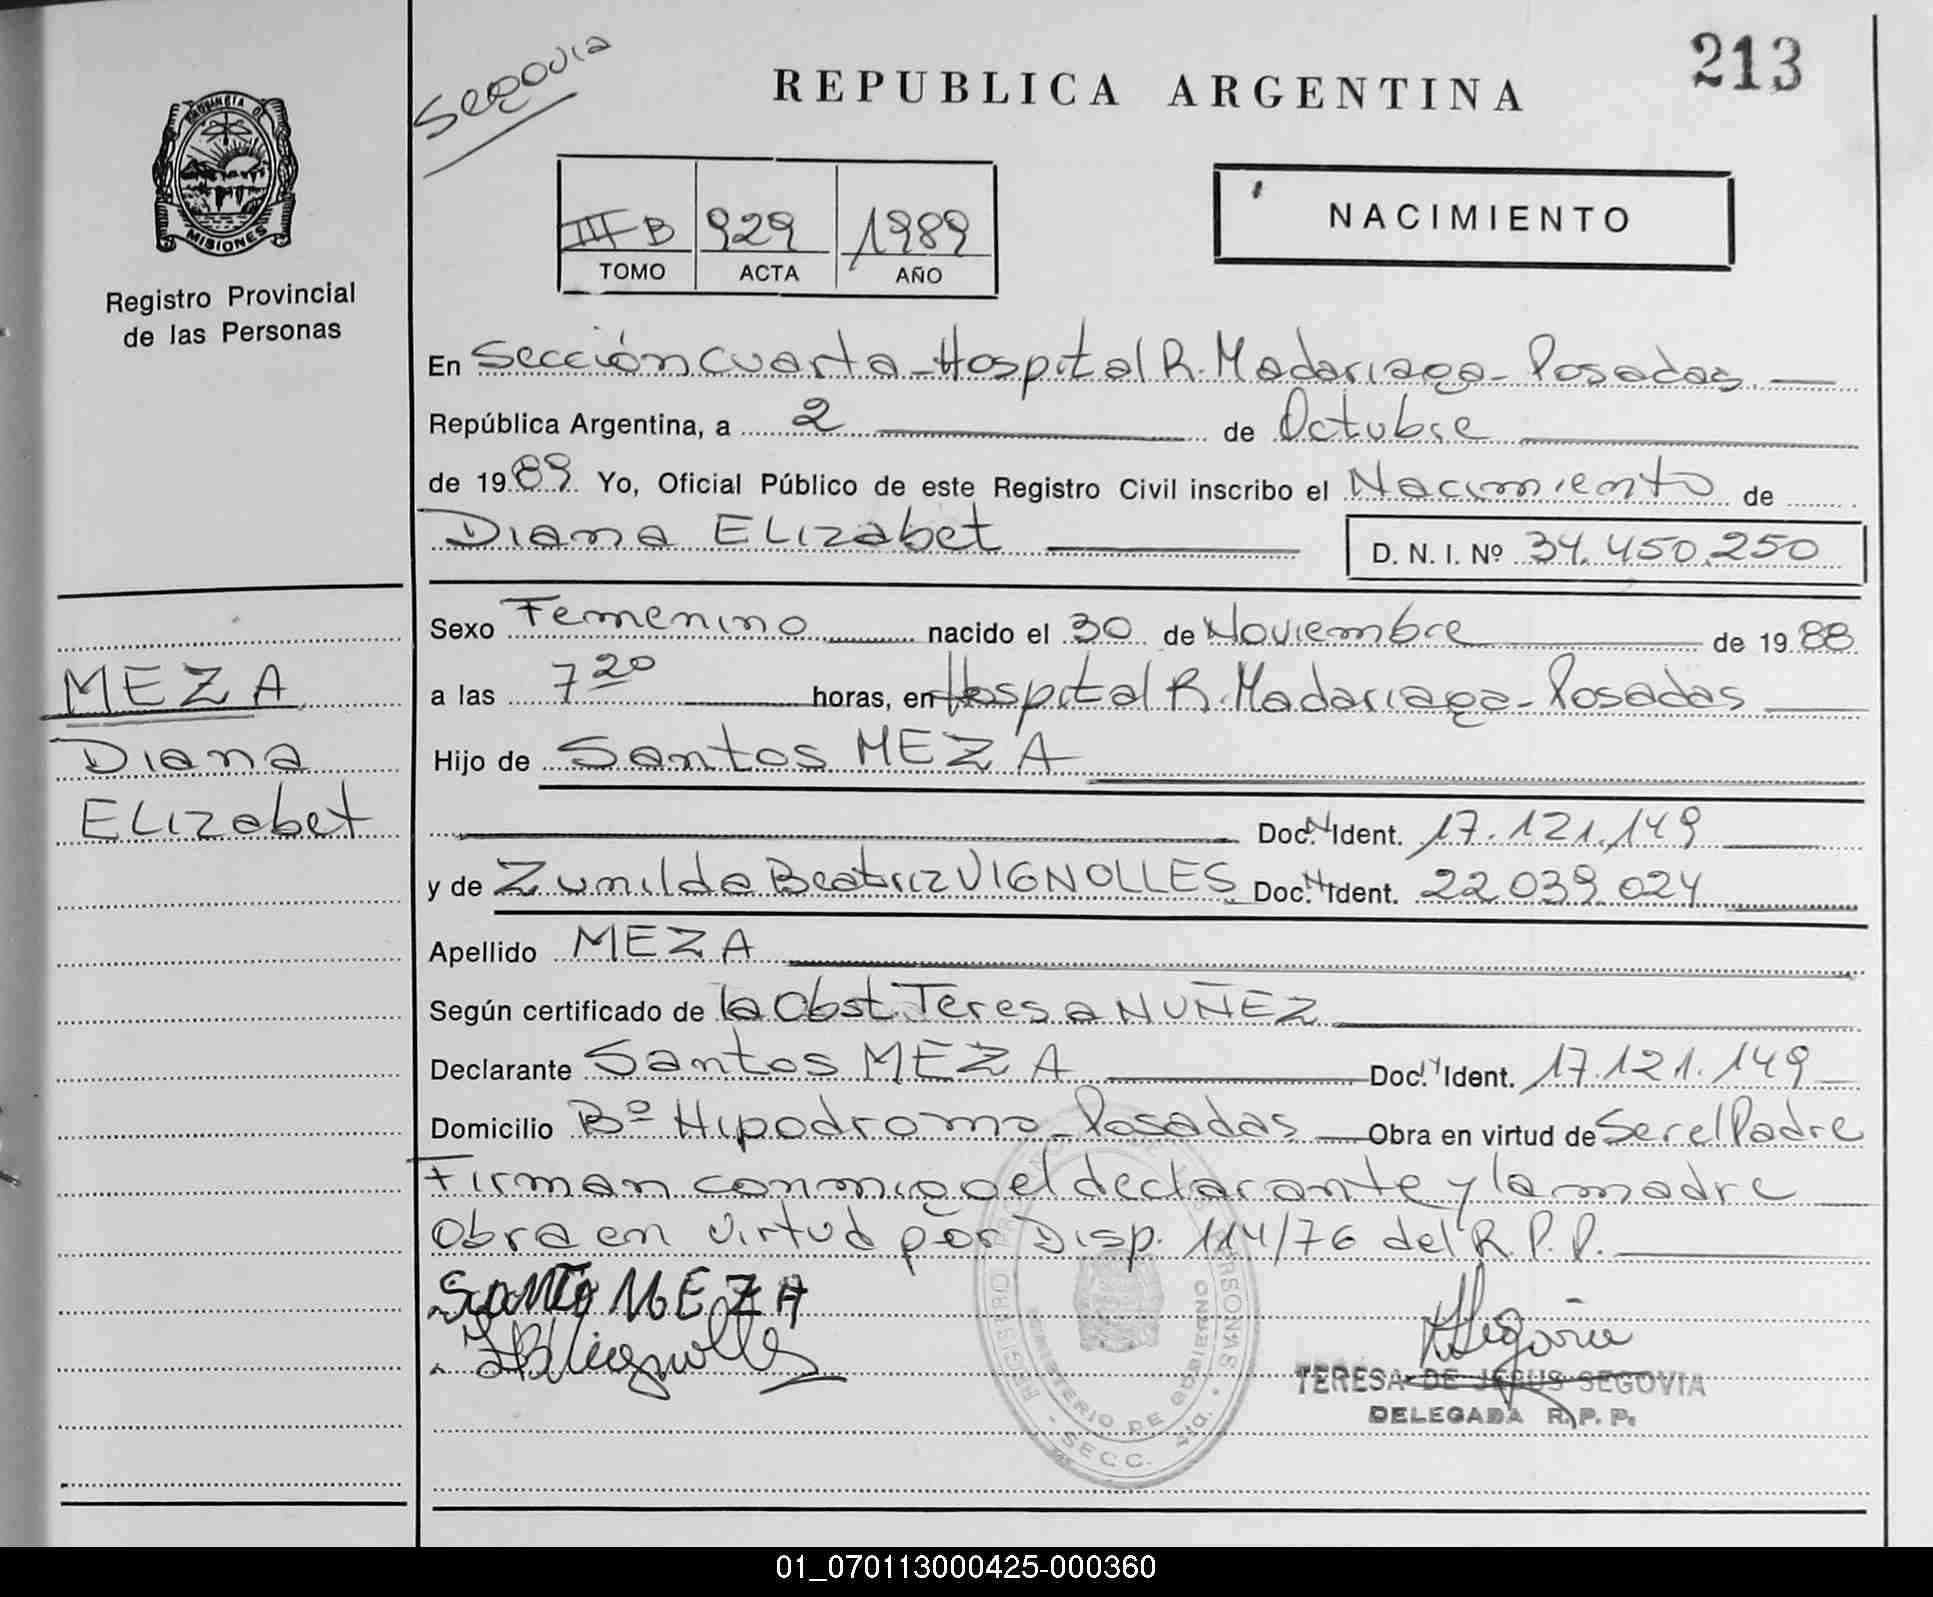 Segovia
REPUBLICA ARGENTINA
213
PROVINCIA DE
MISIONES
Registro Provincial
de las Personas
III B 929 1989
TOMO ACTA AÑO
NACIMIENTO
En Sección Cuarta - Hospital R. Madariaga - Posadas.
República Argentina, a 2 de Octubre
de 1989. Yo, Oficial Público de este Registro Civil inscribo el Nacimiento de
Diana ELizabet D. N. I. Nº 34.450.250
Sexo Femenino nacido el 30 de Noviembre de 1988
MEZA
a las 7 20 horas, en Hospital R. Madariaga - Posadas
Diana
Hijo de Santos MEZA
ELizabet
Doc. N Ident. 17.121.149
y de Zunilda Beatriz VIGNOLLES Doc. N Ident. 22.039.024
Apellido MEZA
Según certificado de la Obst. Teresa NUÑEZ
Declarante Santos MEZA Doc. N Ident. 17.121.149
Domicilio Bº Hipodromo - Posadas Obra en virtud de Ser el Padre
Firman conmigo el declarante y la madre
Obra en virtud por Disp. 114/76 del R.P.P.
SANTO MEZA
ZBVignolles
Segovia
TERESA DE JESUS SEGOVIA
DELEGADA R. P. P.
REGISTRO PROVINCIAL DE LAS PERSONAS
MINISTERIO DE GOBIERNO
SECC. 4ta.
01_070113000425-000360